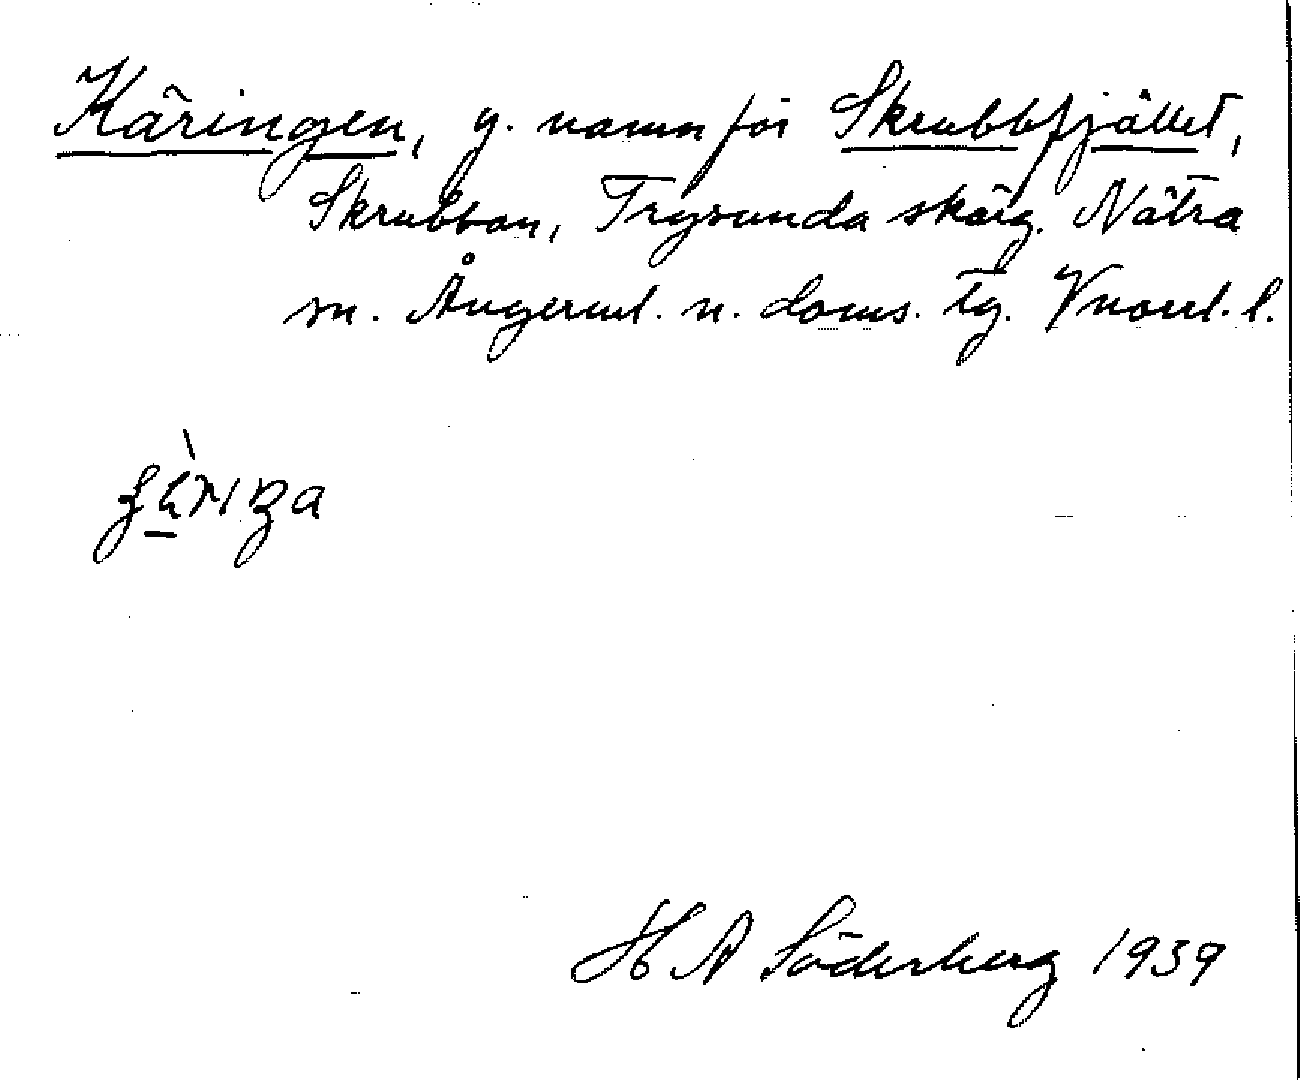 Käringen, g. namn för Skrubbfjället,
Skrubban, Trysunda skärg. Nätra
sn. Ångerml. n. doms. tg. Vnorrl. l.
H A Söderberg 1939